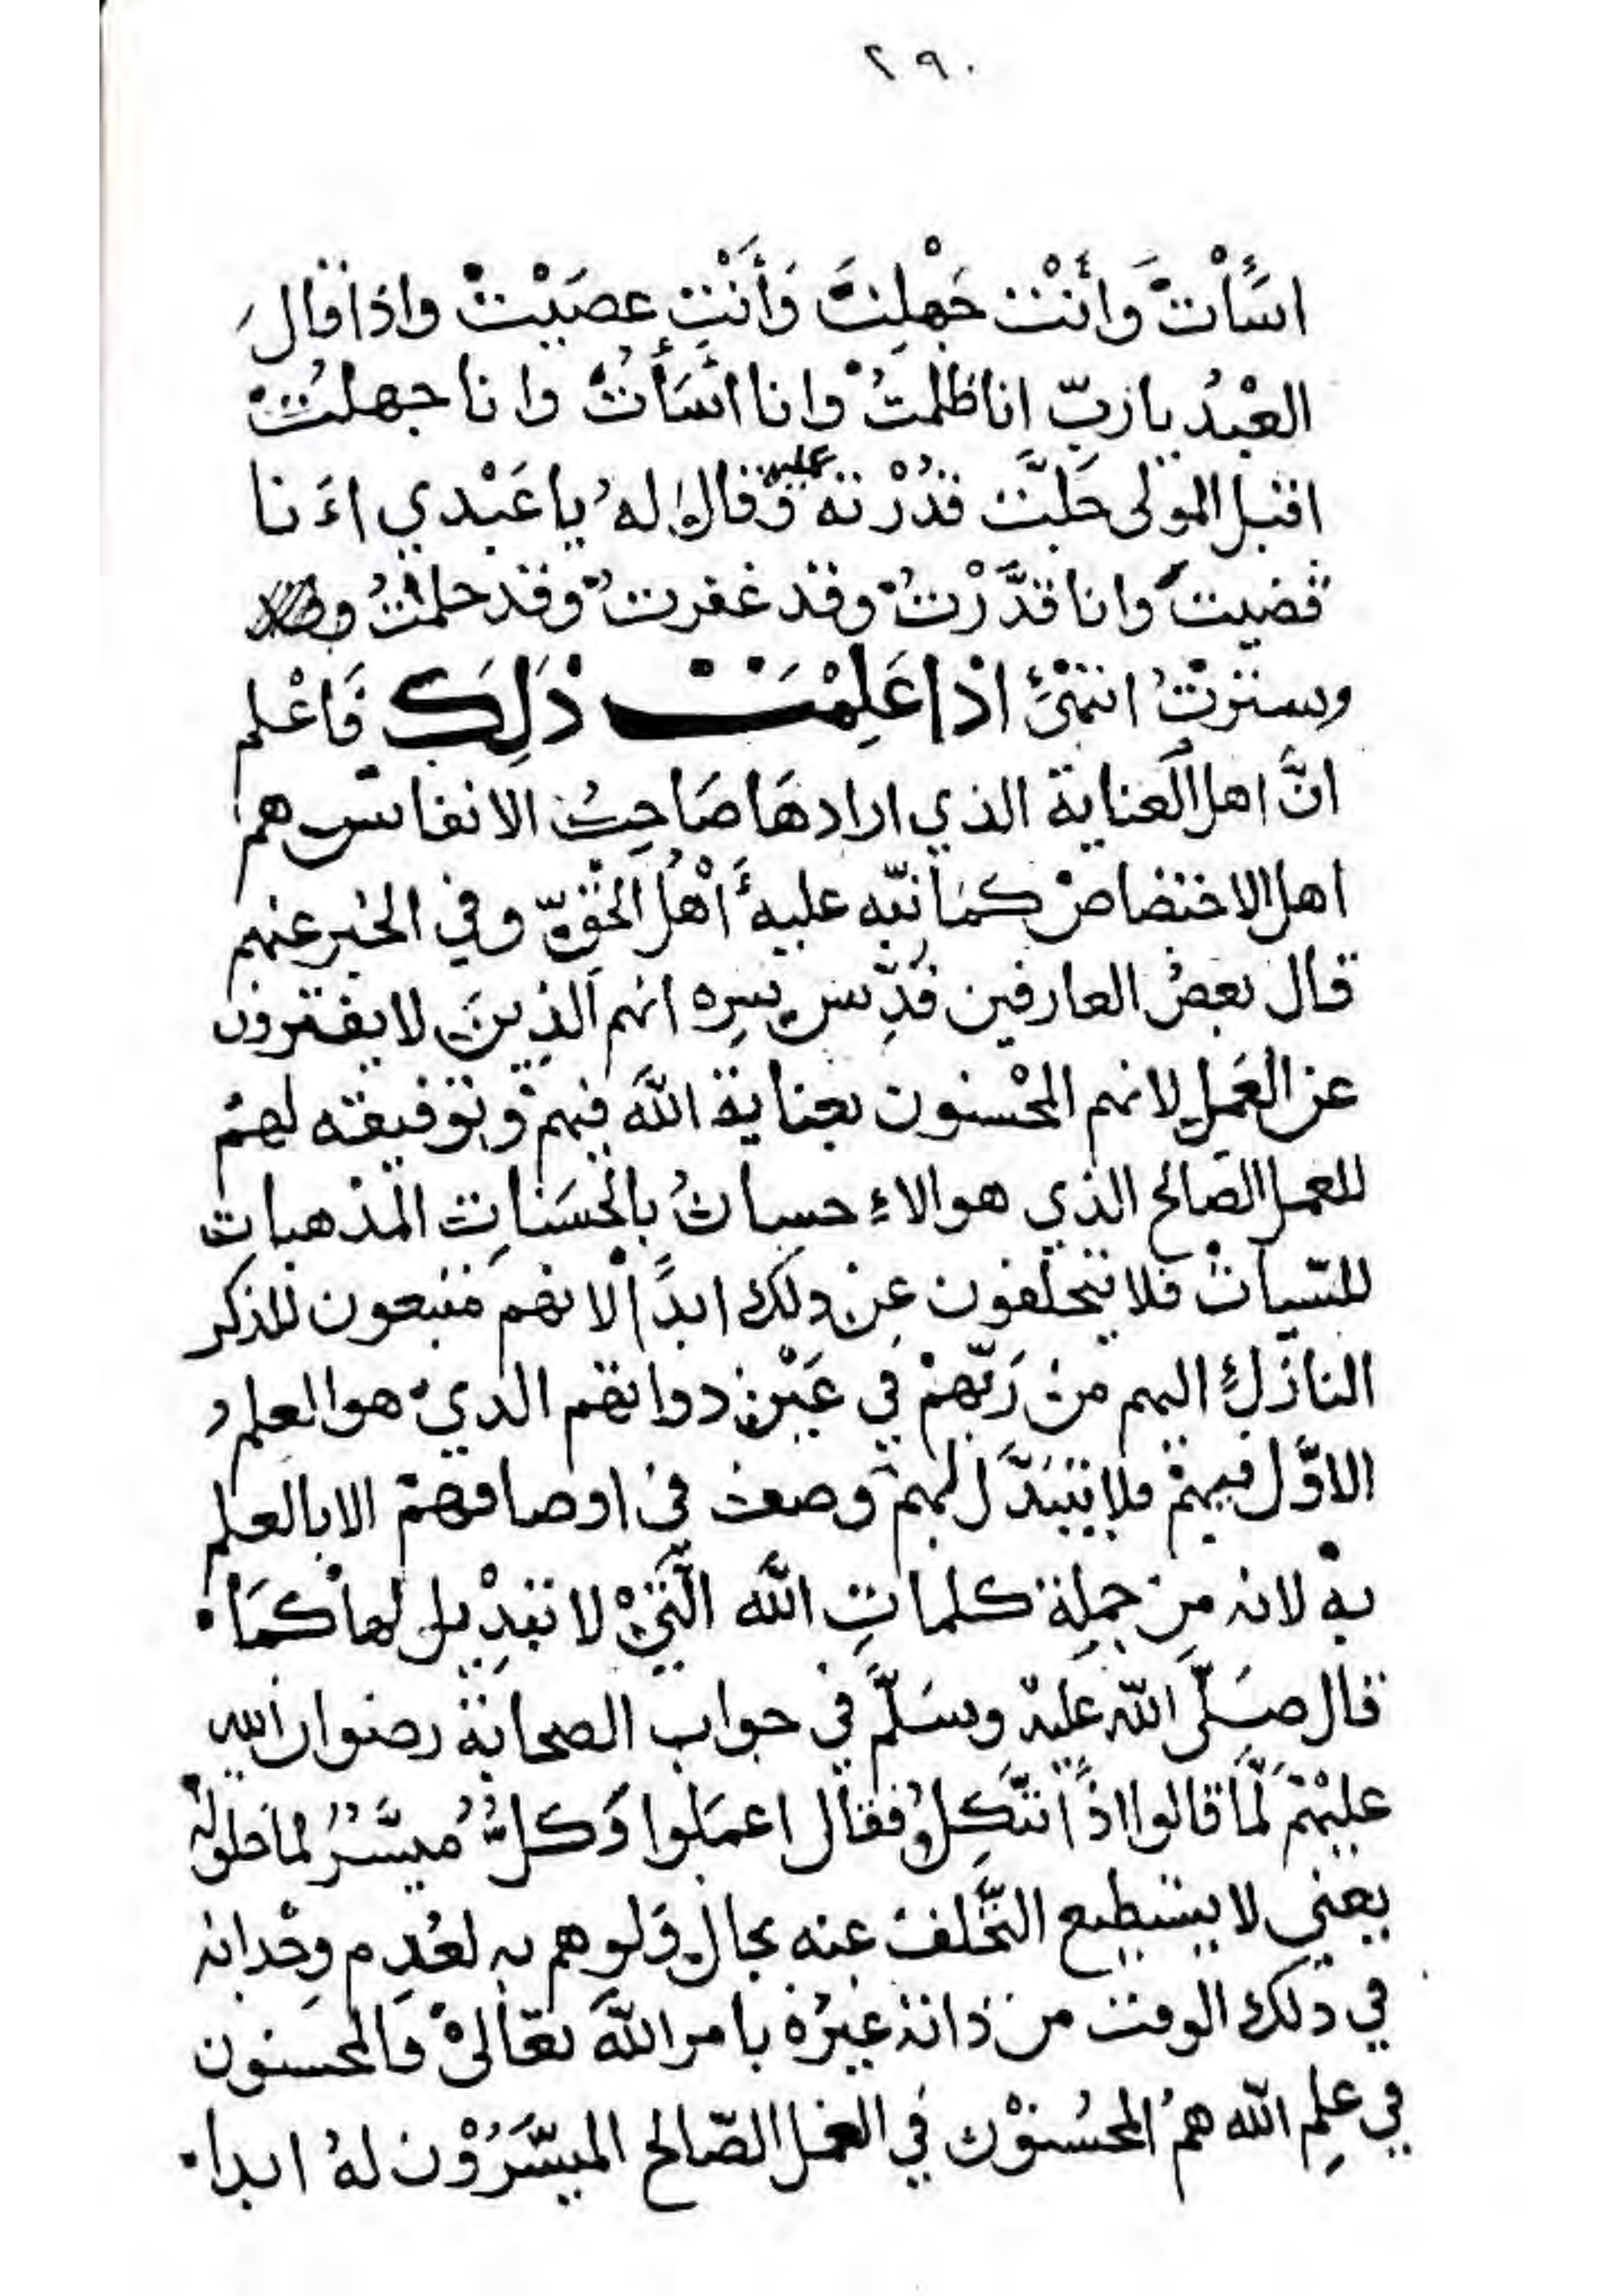 ٢٩٠
اسَأتَ وَأنْت جَهْلِتَ وَأنْتِ عصَيْتْ واذا قالَ
العبْدُ يا ربّ انا ظلمتُ وانا اسَأتُ وانا جهلتُ
اقبل المولى جَلَّت قدُرْته عليه وَقال لهُ يا عَبْدي اءَنا
قضيت وانا قدَّرْتُ وقد غفرت وقد حلمتُ
وسترتُ انتهَى اذا عَلِمْتَ ذَلِكَ فَاعْلم
انَّ اهل العناية الذي ارادهَا صَاحِبُ الانفاس هم
اهل الاختصاص كمَا نبّه عليهَ أهْلُ الحَقّ وفي الخبر عنهم
قال بعضُ العارفين قدِّس سِره انهم الذِينَ لا يفترون
عن العَمل لانهم المحْسنون بعناية اللَّه فيهم وبتوفيقه لهم
للعمل الصَالح الذي هو الاءِ حسانُ بالحَسَناتِ المذهباتِ
للسّيأتْ فلا يتخلفون عِن ذلك ابدًا لانهم متبعون للذكر
النازلِ اليهم من رَبّهمْ في عَيْن ذواتهم الذي هو العلم
الاوَّل فيهمْ فلا يتبَدَّل لهم وصف في اوصافهم الا بالعلم
بهْ لانه مِن جملِة كلماتِ اللَّه الَّتيْ لا تبْدِيل لها كمَا
قال صَلّى اللّه عليْهْ وسَلَّم في جواب الصحابة رضوان الله
عليْهمْ لَمَّا قالوا اذاً نتَّكِل فقال اعمَلوا وَكلٌ مُيسَّرٌ لما خلق له
يعني لا يستطيع التَّخلف عنه بحال وَلو هم به لعَدِم وجْدانه
في ذلك الوقت من ذاته غيرُه بامر اللَّه تعَالىْ فالمحسنون
في علِم اللّه همُ المحُسنوْن في العَمل الصَّالح الميسَّرُوْن لهُ ابدا